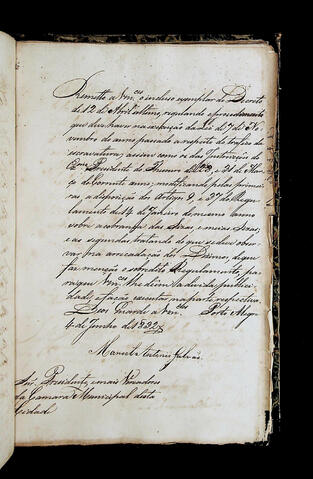 Remetto a Vm.ces o incluso exemplar do Decreto
de 12 de Abril ultimo, regulando o procedimento
que deve haver na execução da Lei de 7 de No-
vembro do anno passado a respeito do trafico da
escravatura; assim como os das Instrucções do
Ex.mo Presidente do Thesouro de 28, e 31 de Mar-
ço do corrente anno; modificando pelas primei-
ras, a disposição dos Artigos 9, e 37 do Regu-
lamento de 14 de Janeiro do mesmo anno
sobre a cobrança das Sizas e meias Sizas;
e as segundas tratando do que se deve obser-
var na arrecadação dos Dizimos, de que
faz menção o sobredito Regulamento, pa-
ra que Vm.ces lhe dêm a devida publici-
dade, e fação executar na parte respectiva.
Deos Guarde a Vm.ces Porto Alegre
4 de Junho de 1832
Manoel Antonio Galvão
Snr. Presidente, e mais Vereadores
da Camara Municipal desta
Cidade